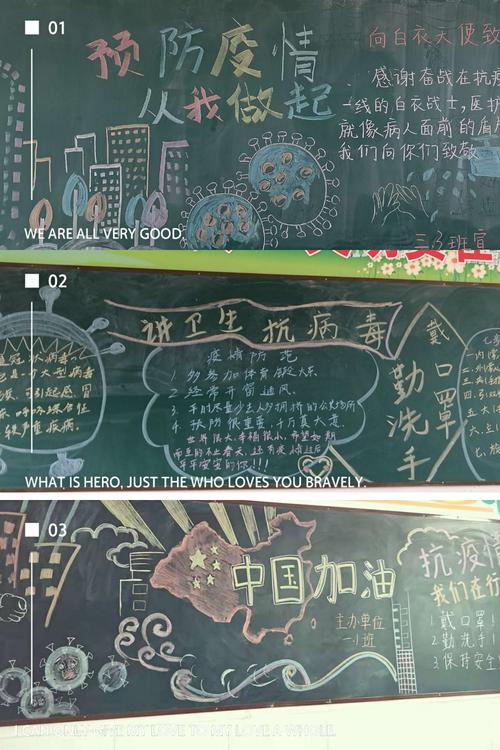 01
预防疫情
从我做起
向白衣天使致
感谢奋战在抗疫
一线的白衣战士,医护
就像病人面前的盾
我们向你们致敬
三(3)班宣
WE ARE ALL VERY GOOD.
02
讲卫生抗病毒
疫情防范
1. 多参加体育锻炼
2. 经常开窗通风.
3. 平时尽量少去人多拥挤的公共场所
4. 扶防很重要 千万真大意.
世界很大,幸福很小,希望如期
而至的不止春天,还有疫情过后
平平安安的你!!!
戴口罩
勤洗手
WHAT IS HERO, JUST THE WHO LOVES YOU BRAVELY.
03
中国加油
主办单位
一.1班
抗疫情
我们在行
1 戴口罩!
2 勤洗手
3 保持安全
I CAN ONLY GIVE MY LOVE TO MY LOVE A WHOLE.